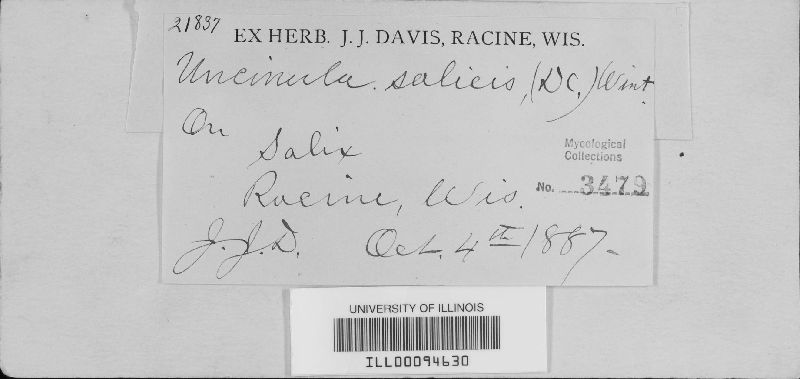 21837
EX HERB. J. J. DAVIS, RACINE, WIS.
Uncinula salicis, (DC.) Wint.
On
Salix
Mycological
Collections
No. 3479
Racine, Wis.
J. J. D. Oct. 4th 1887.
UNIVERSITY OF ILLINOIS
ILL00094630